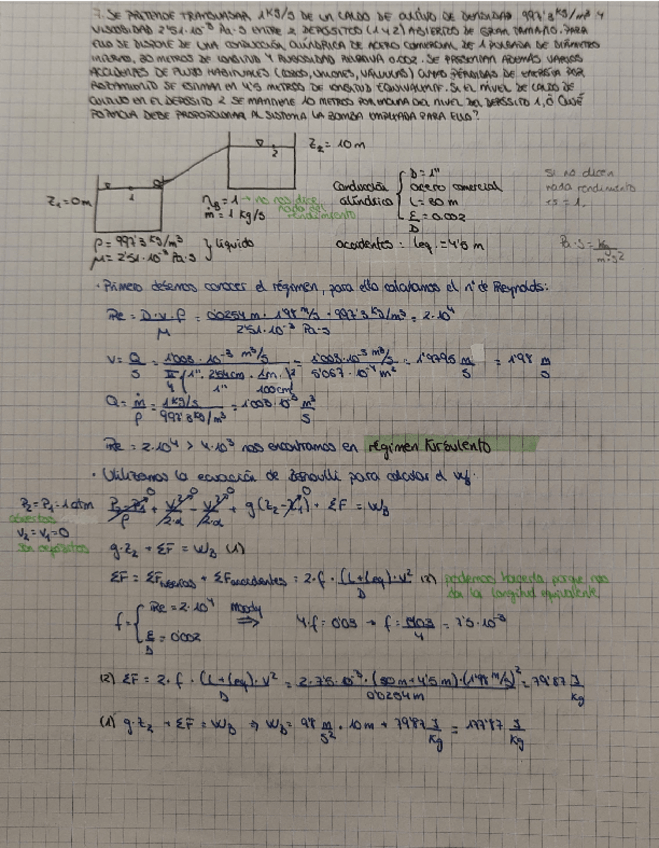 7. SE PRETENDE TRANSVASAR 1 KG/S DE UN CALDO DE CULTIVO DE DENSIDAD 997'3 KG/M³ Y
VISCOSIDAD 2'51·10⁻³ Pa·S ENTRE 2 DEPÓSITOS (1 Y 2) ABIERTOS DE GRAN TAMAÑO. PARA
ELLO SE DISPONE DE UNA CONDUCCIÓN CILÍNDRICA DE ACERO COMERCIAL DE 1 PULGADA DE DIÁMETRO
INTERNO, 30 METROS DE LONGITUD Y RUGOSIDAD RELATIVA 0.002. SE PRESENTAN ADEMÁS VARIOS
ACCIDENTES DE FLUJO HABITUALES (CODOS, UNIONES, VÁLVULAS) CUYAS PÉRDIDAS DE ENERGÍA POR
ROZAMIENTO SE ESTIMAN EN 4'5 METROS DE LONGITUD EQUIVALENTE. SI EL NIVEL DE CALDO DE
CULTIVO EN EL DEPÓSITO 2 SE MANTIENE 10 METROS POR ENCIMA DEL NIVEL DEL DEPÓSITO 1, ¿QUÉ
POTENCIA DEBE PROPORCIONAR AL SISTEMA LA BOMBA EMPLEADA PARA ELLO?
2
Z₂ = 10m
Z₁ = 0m
1
η_B = 1 → no nos dice nada del rendimiento
ṁ = 1 kg/s
conducción cilíndrica
D = 1"
acero comercial
L = 30 m
ε/D = 0'002
si no dicen
nada rendimiento
es = 1.
ρ = 997'3 kg/m³
μ = 2'51·10⁻³ Pa·s
} líquido
accidentes: Leq. = 4'5 m
Pa·s = kg/m·s²
· Primero debemos conocer el régimen, para ello calculamos el nº de Reynolds:
Re = D·v·ρ/μ = 0'0254 m · 1'98 m/s · 997'3 kg/m³ / 2'51·10⁻³ Pa·s = 2·10⁴
v = Q/S = 1'003·10⁻³ m³/s / π/4 (1" · 2'54cm/1" · 1m/100cm)² = 1'003·10⁻³ m³/s / 5'067·10⁻⁴ m² = 1'9795 m/s = 1'98 m/s
Q = ṁ/ρ = 1 kg/s / 997'3 kg/m³ = 1'003·10⁻³ m³/s
Re = 2·10⁴ > 4·10³ nos encontramos en régimen turbulento
· Utilizamos la ecuación de Bernoulli para calcular el
P₂ = P₁ = 1 atm
abiertos
v₂ = v₁ = 0
son depósitos
P₂-P₁/ρ + v²/2·α - v²/2·α + g(z₂-z₁) + ΣF = W_B
g·z₂ + ΣF = W_B (1)
ΣF = ΣF + ΣF_accidentes = 2·f·(L+Leq)·v²/D (2) podemos hacerla porque nos
da la longitud equivalente
f = { Re = 2·10⁴ ε/D = 0'002 Moody ⇒ 4·f = 0'03 → f = 0'03/4 = 7'5·10⁻³
(2) ΣF = 2·f·(L+Leq)·v²/D = 2·7'5·10⁻³·(30m+4'5m)·(1'98 m/s)²/0'0254m = 79'87 J/kg
(1) g·z₂ + ΣF = W_B ⇒ W_B = 9'8 m/s² · 10m + 79'87 J/kg = 177'87 J/kg